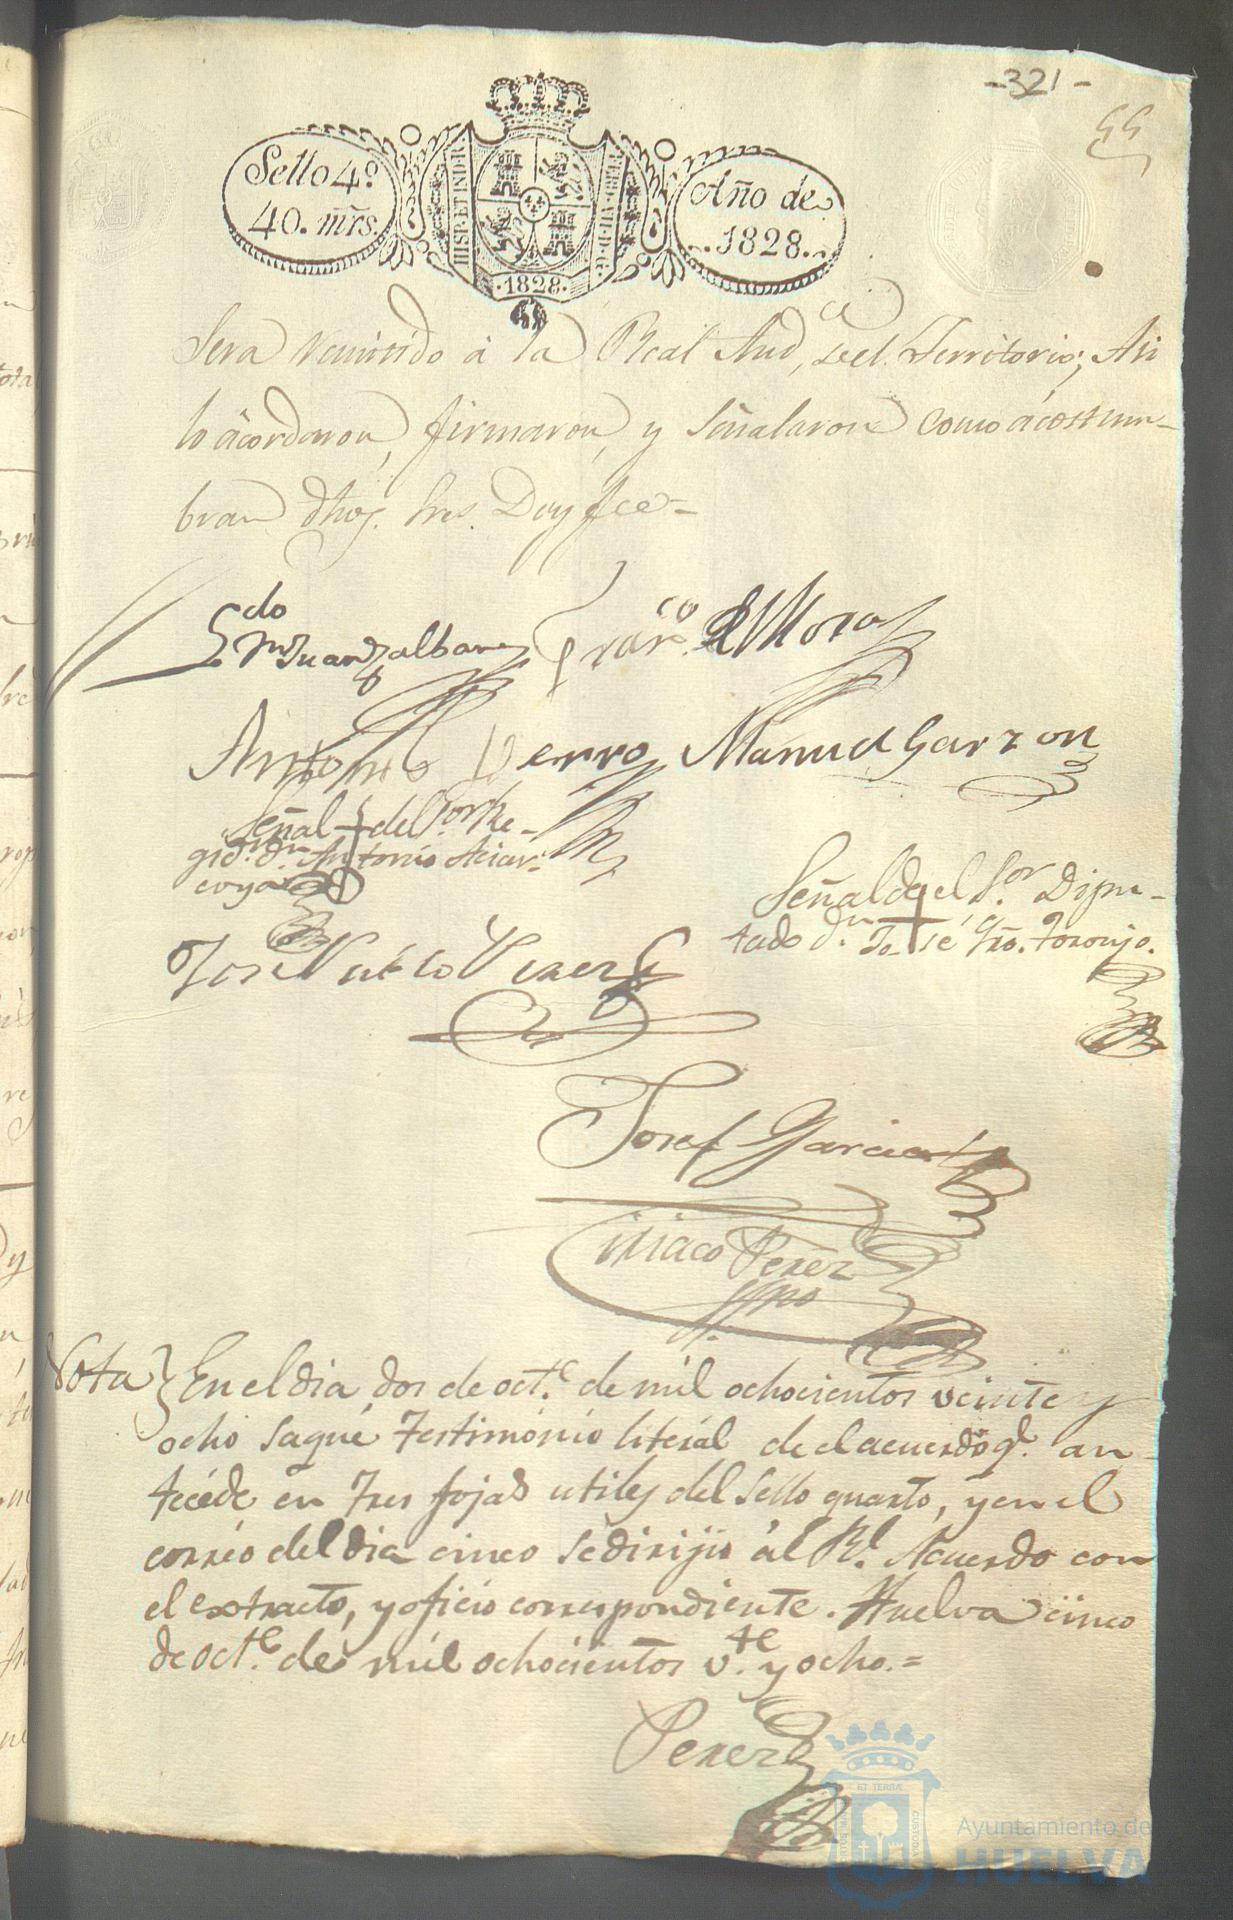 -321-
55
Sello 4º
40. mrs.
HISP. ET IND. R.
1828.
Año de
1828.
Sera remitido á la Real Aud,ª del Territorio; Asi
lo ácordaron, firmaron, y señalaron como ácostum-
bran dhos. Sres. Doy fee=
Ldo
Franco. de Mora
Antonio Perro
Manuel Garzon
Señal + del Sor Re-
gidr. dn. Antonio
Señal de el Sor. Dipu-
tado dn. José Gro. Toronjo.
Perez
Josef Garcia
Ciriaco Perez
Nota } En el dia dos de octe. de mil ochocientos veinte y
ocho saqué Testimónio literál de el acuerdo qe. an-
tecéde en tres fojas utiles del Sello quarto, y en el
corréo del dia cinco se dirijio ál Rl. Acuerdo con
el extracto, y oficio correspondiente. Huelva cinco
de octe. de mil ochocientos vte. y ocho.=
Perez
ET TERRÆ
CUSTODIA
Ayuntamiento de
HUELVA